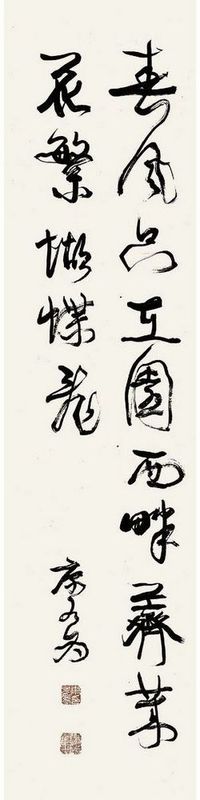 春風只在園西畔薺菜
花繁蝴蝶亂
康有為